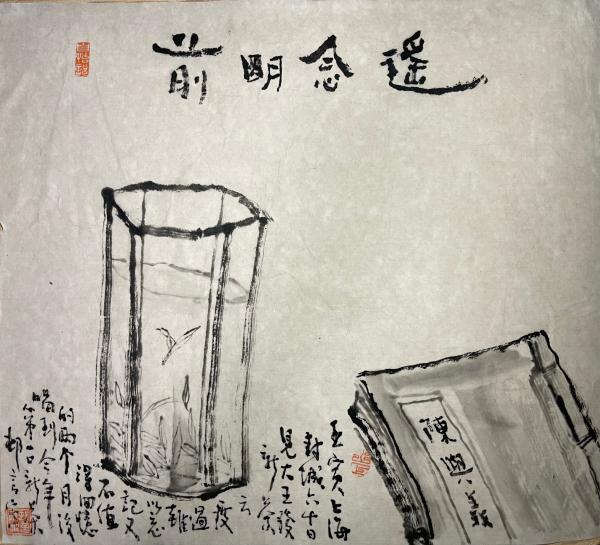 遙念明前
陳與義
壬寅上海
封城六十日
見大王發
新茶
云度
過難
以忘
記又
不值
得回憶
的兩个月後
喝到今年
第一口新茶